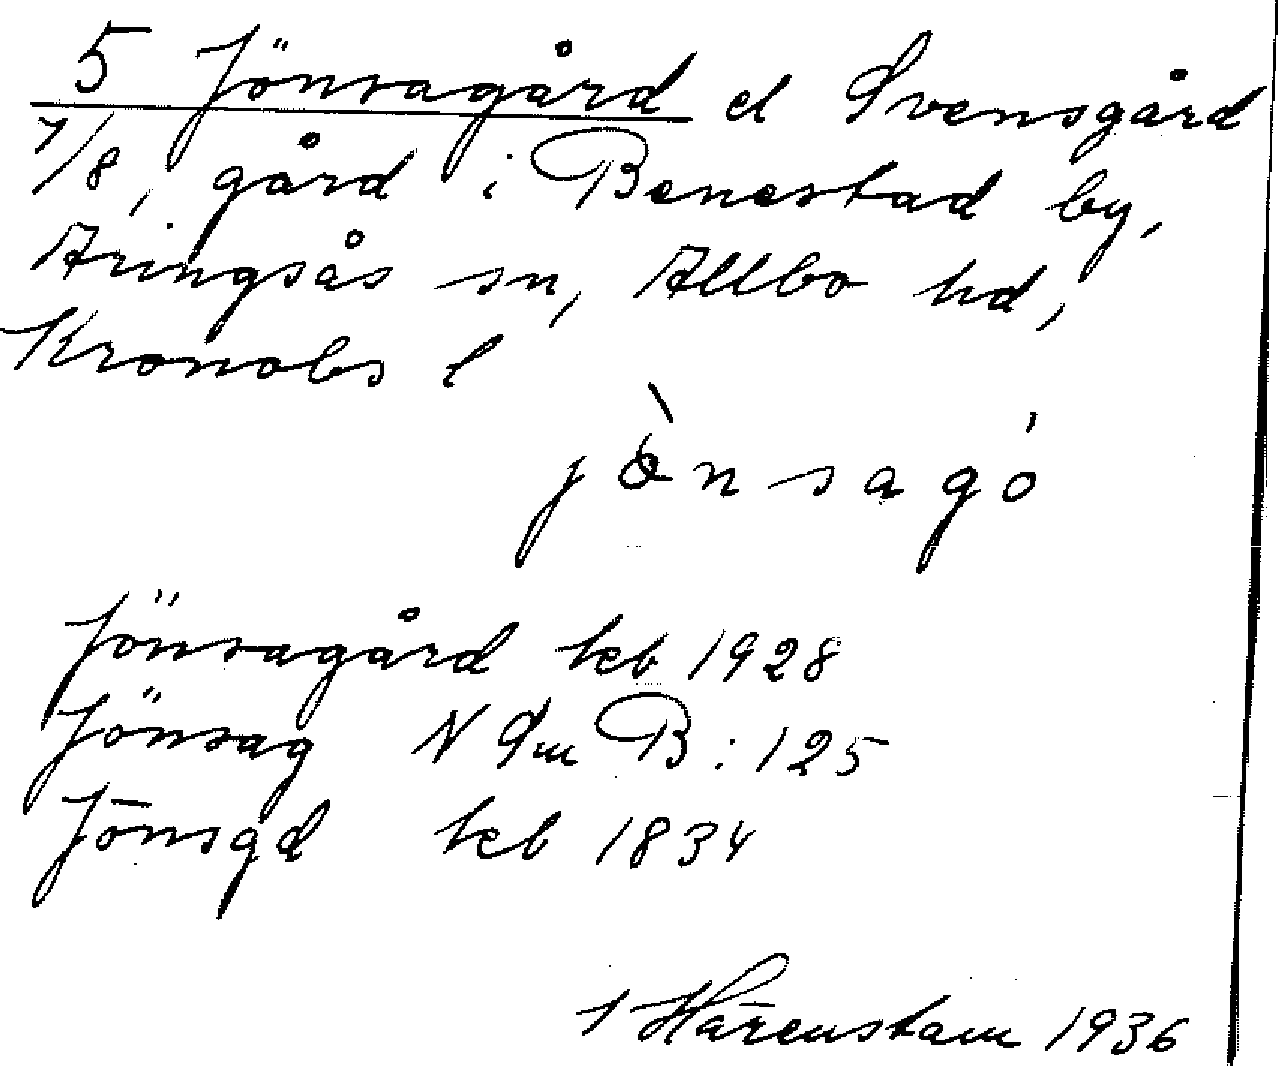 5 Jönsagård el Svensgård
7/8, gård i Benestad by,
Aringsås sn, Allbo hd,
Kronobs l
jònsagó
Jönsagård kcb 1928
Jönsag N Sm B:125
Jönsgd kcb 1834
1 Härenstam 1936